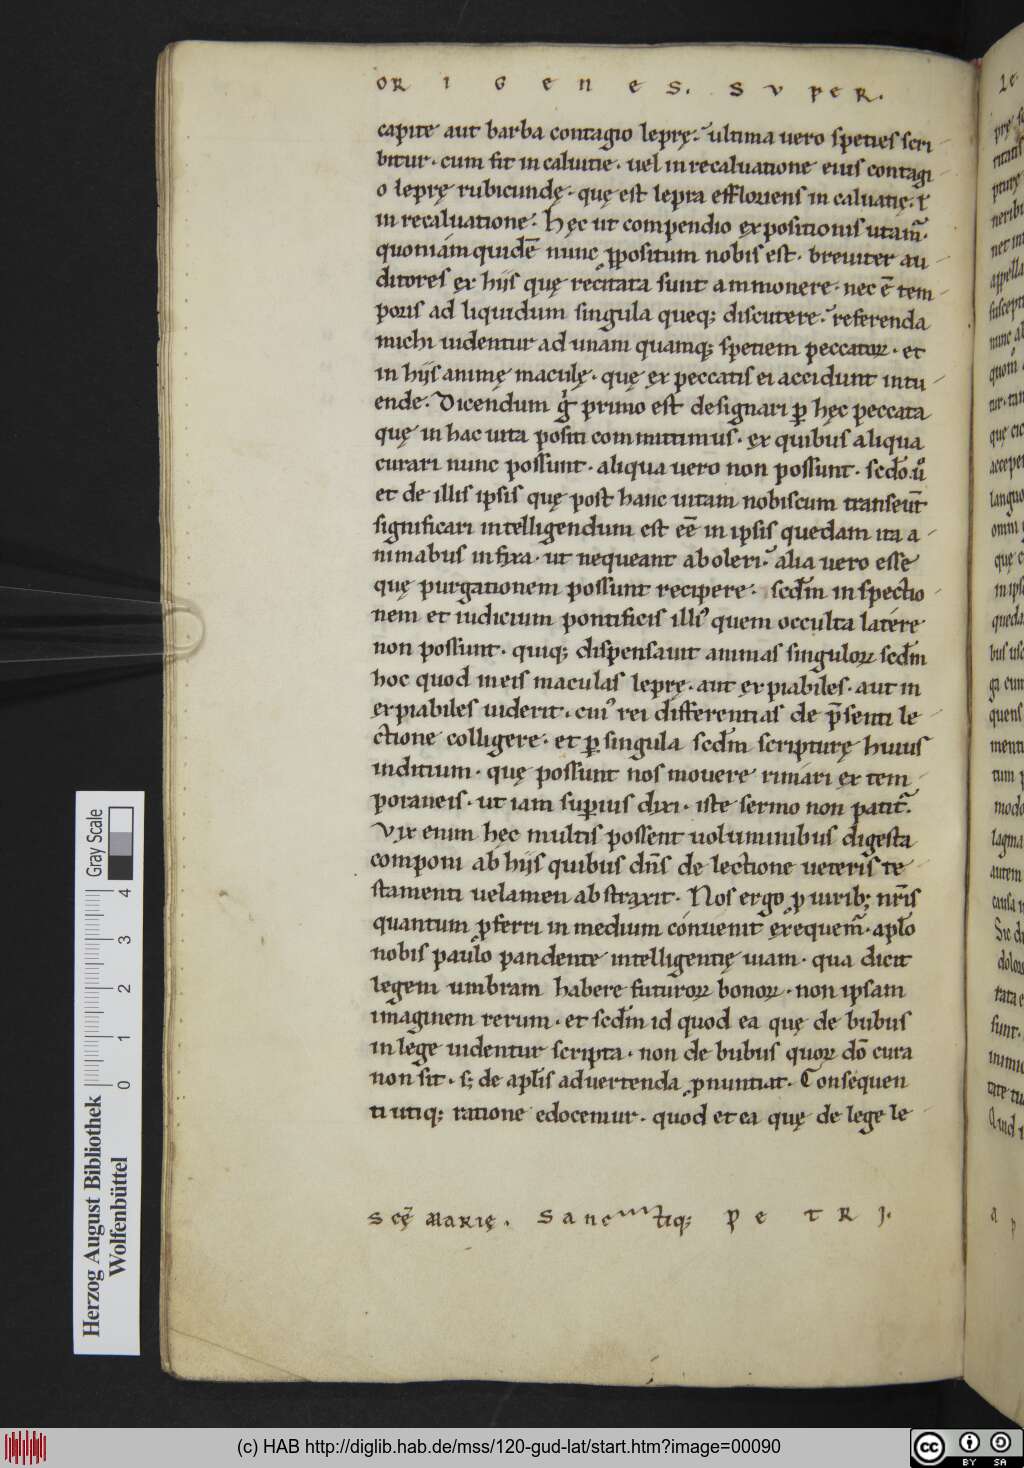 OR I G E N E S. S V P E R.
capite aut barba contagio leprę. ultima uero speties scri
bitur. cum fit in caluitie. uel in recaluatione eius contagi
o leprę rubicundę. quę est lepra effloriens in caluatię. ł
in recaluatione. Hęc ut compendio expositionis utam̃.
quoniam quidē nunc ꝓpositum nobis est. breuiter au
ditores ex hijs quę recitata sunt ammonere. nec ē tem
poris ad liquidum singula queq; discutere. referenda
michi uidentur ad unam quamq; spetiem peccatoꝝ. et
in hijs animę maculę. quę ex peccatis ei accidunt intu
ende. Dicendum gͥ primo est designari ꝑ hęc peccata
quę in hac uita positi committimus. ex quibus aliqua
curari nunc possunt. aliqua uero non possunt. scdo. uͦ
et de illis ipsis quę post hanc uitam nobiscum transeut̄
significari intelligendum est eē in ipsis quedam ita a
nimabus infixa. ut nequeant aboleri. alia uero esse
quę purgationem possunt recipere. scdm inspectio
nem et iudicium pontificis illiꝰ quem occulta latere
non possunt. quiq; dispensauit animas singuloꝝ scdm
hoc quod in eis maculas leprę. aut expiabiles. aut in
expiabiles uiderit. cuiꝰ rei differentias de p̄senti le
ctione colligere. et ꝑ singula scdm scripturę huius
inditium. quę possunt nos mouere rimari ex tem
poraneis. ut iam suꝑius dixi. iste sermo non patit᷑.
Vix enim hęc multis possent uoluminibus digesta
componi ab hijs quibus dn̄s de lectione ueteris te
stamenti uelamen abstraxit. Nos ergo ꝓ uirib; nr̄is
quantum ꝓferri in medium conuenit exequem᷑. aplo
nobis paulo pandente intelligentię uiam. qua dicit
legem umbram habere futuroꝝ bonoꝝ. non ipsam
imaginem rerum. et scdm id quod ea quę de bubus
in lege uidentur scripta. non de bubus quoꝝ dō cura
non sit. s; de aplis aduertenda ꝓnuntiat. Consequen
ti utiq; ratione edocemur. quod et ea quę de lege le
Scę̄ MARIę. Sanctiq; P E T R I.
Herzog August Bibliothek
Wolfenbüttel
0 1 2 3 4
Gray Scale
(c) HAB http://diglib.hab.de/mss/120-gud-lat/start.htm?image=00090
cc BY SA